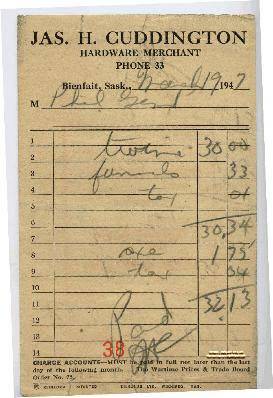 JAS. H. CUDDINGTON
HARDWARE MERCHANT
PHONE 33
Bienfait, Sask., March 19 1947
M Phil
1
2 30 00
3 funnels 33
4 tax 01
5
6 30,34
7
8 axe 1 75
9 tax 04
10
11 32.13
12 Paid
13
14 38
CHARGE ACCOUNTS—MUST be paid in full not later than the last
day of the following month. The Wartime Prices & Trade Board
Order No. 75.